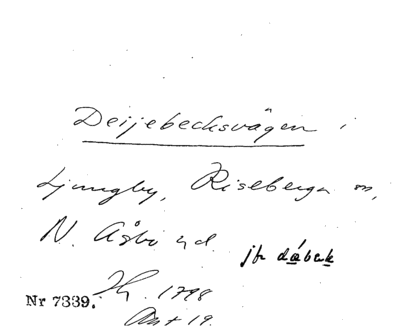 Deijebecksvägen i
Ljungby, Riseberga sn,
N. Åsbo hd. jfr dábäck
Nr 7339. Hg. 1798
Akt 19.